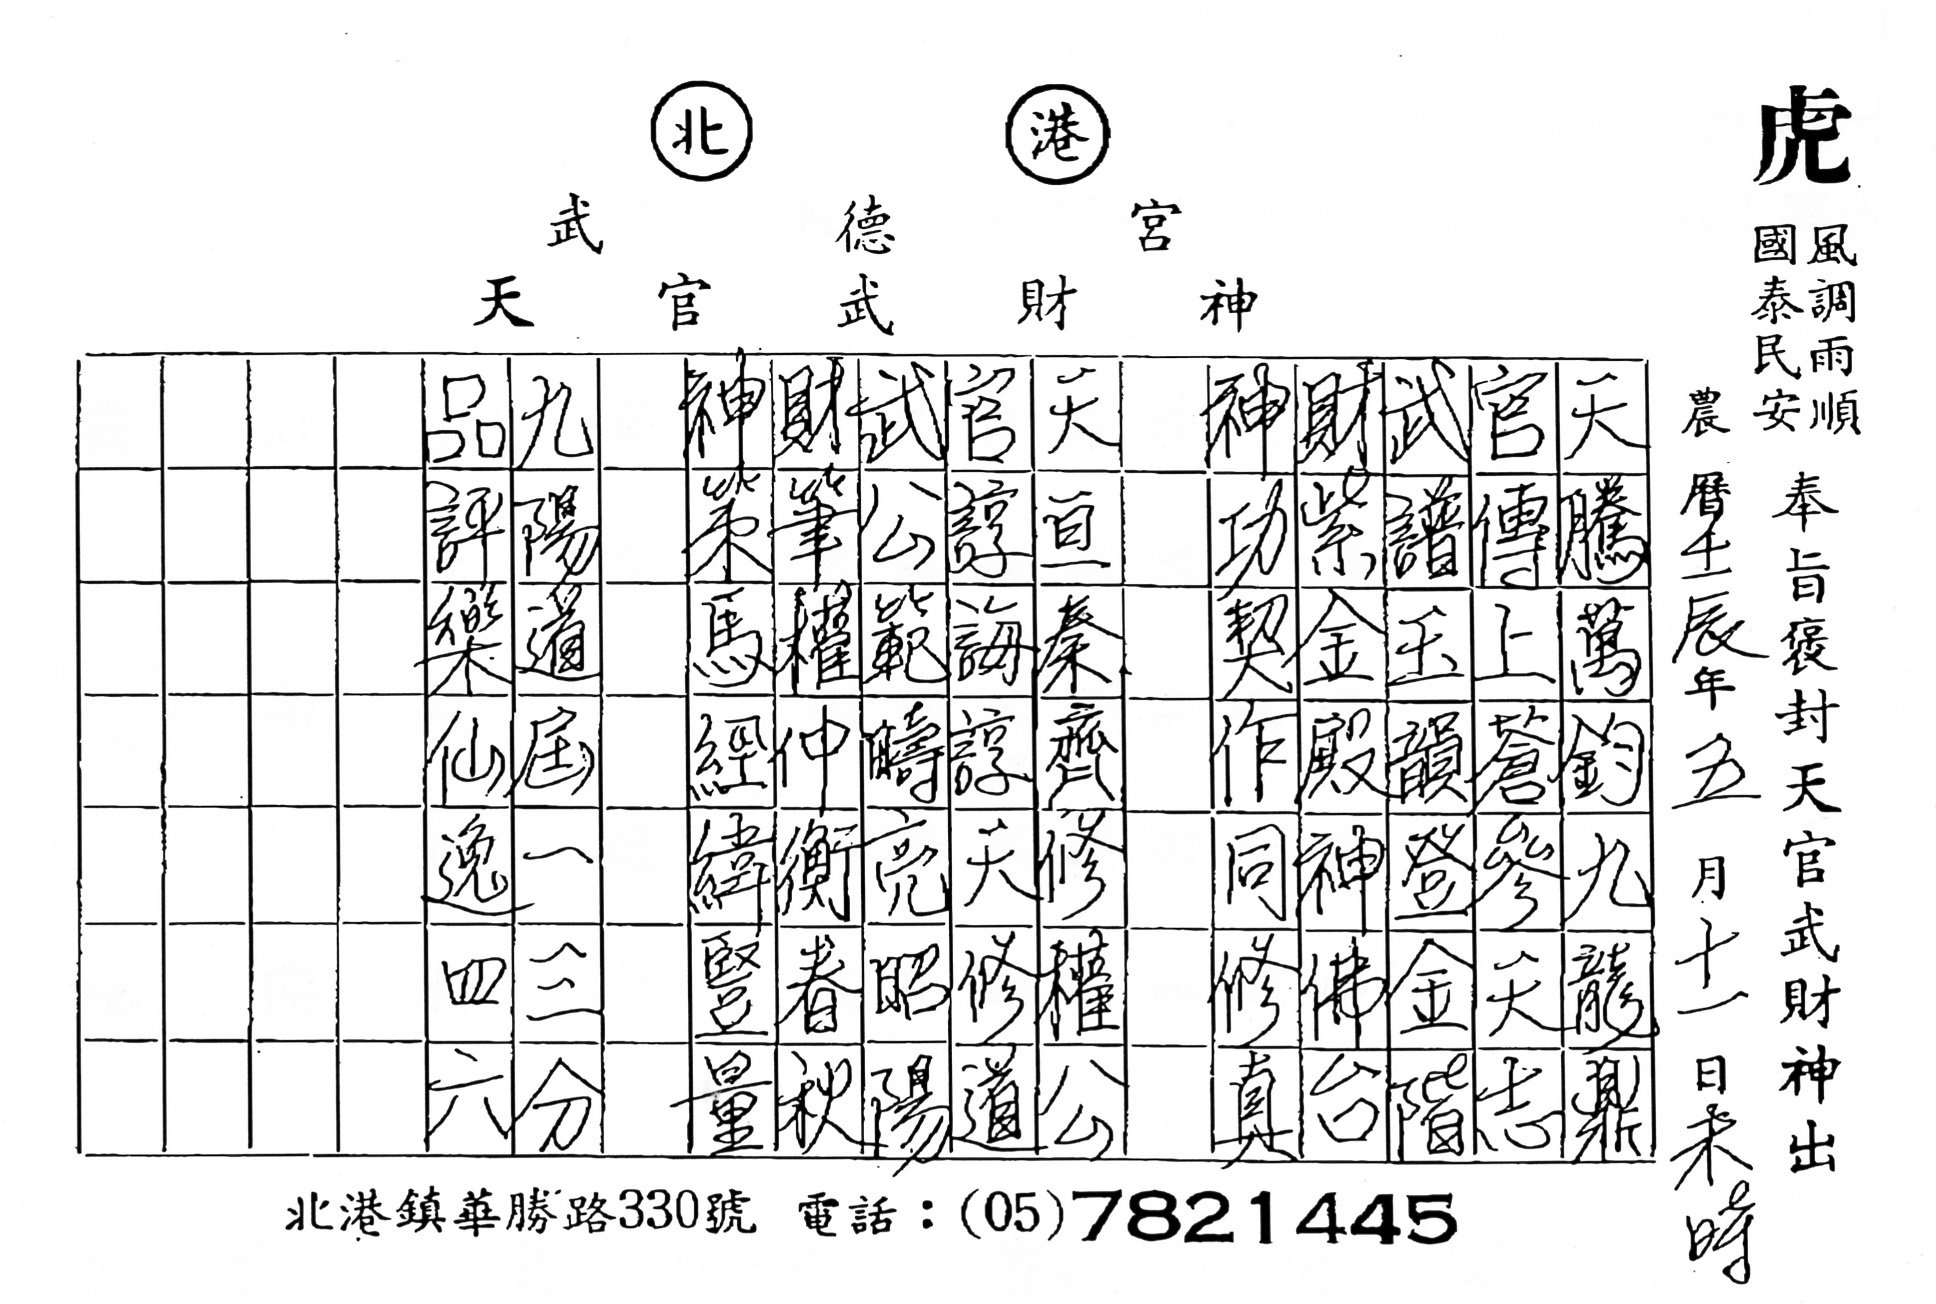 虎
風調雨順
國泰民安
奉旨褒封天官武財神出
農曆壬辰年五月十一日未時
北港
武德宮
天官武財神
天騰萬鈞九龍鼎
官傳上蒼參天志
武譜玉韻登金階
財紫金殿神佛台
神功契作同修真
天亘秦齊修權公
官諄誨諄天修道
武公範疇亮昭陽
財筆權仲衡春秋
神策馬經緯豎量
九陽道屆一三分
品評樂仙逸四六
北港鎮華勝路330號 電話：(05)7821445